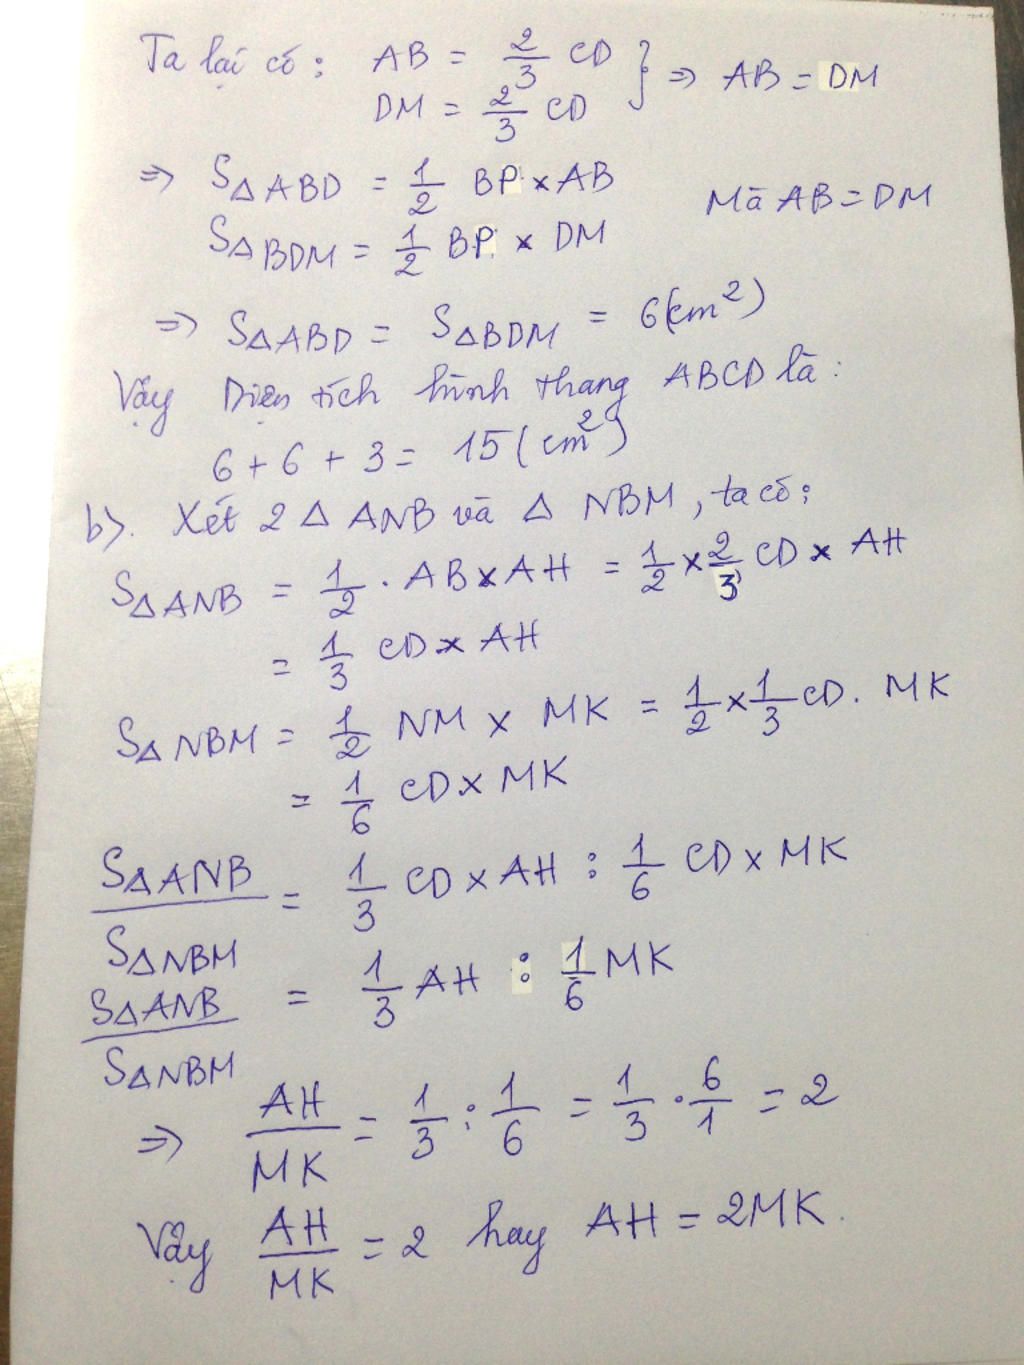 Ta lại có: AB = 2/3 CD
DM = 2/3 CD } => AB = DM
=> S△ABD = 1/2 BP × AB
Mà AB = DM
S△BDM = 1/2 BP × DM
=> S△ABD = S△BDM = 6(cm²)
Vậy Diện tích hình thang ABCD là:
6 + 6 + 3 = 15 (cm²)
b). Xét 2 △ ANB và △ NBM, ta có:
S△ANB = 1/2 . AB × AH = 1/2 × 2/3 CD × AH
= 1/3 CD × AH
S△NBM = 1/2 NM × MK = 1/2 × 1/3 CD . MK
= 1/6 CD × MK
S△ANB / S△NBM = 1/3 CD × AH : 1/6 CD × MK
S△ANB / S△NBM = 1/3 AH : 1/6 MK
=> AH/MK = 1/3 : 1/6 = 1/3 . 6/1 = 2
Vậy AH/MK = 2 hay AH = 2MK.